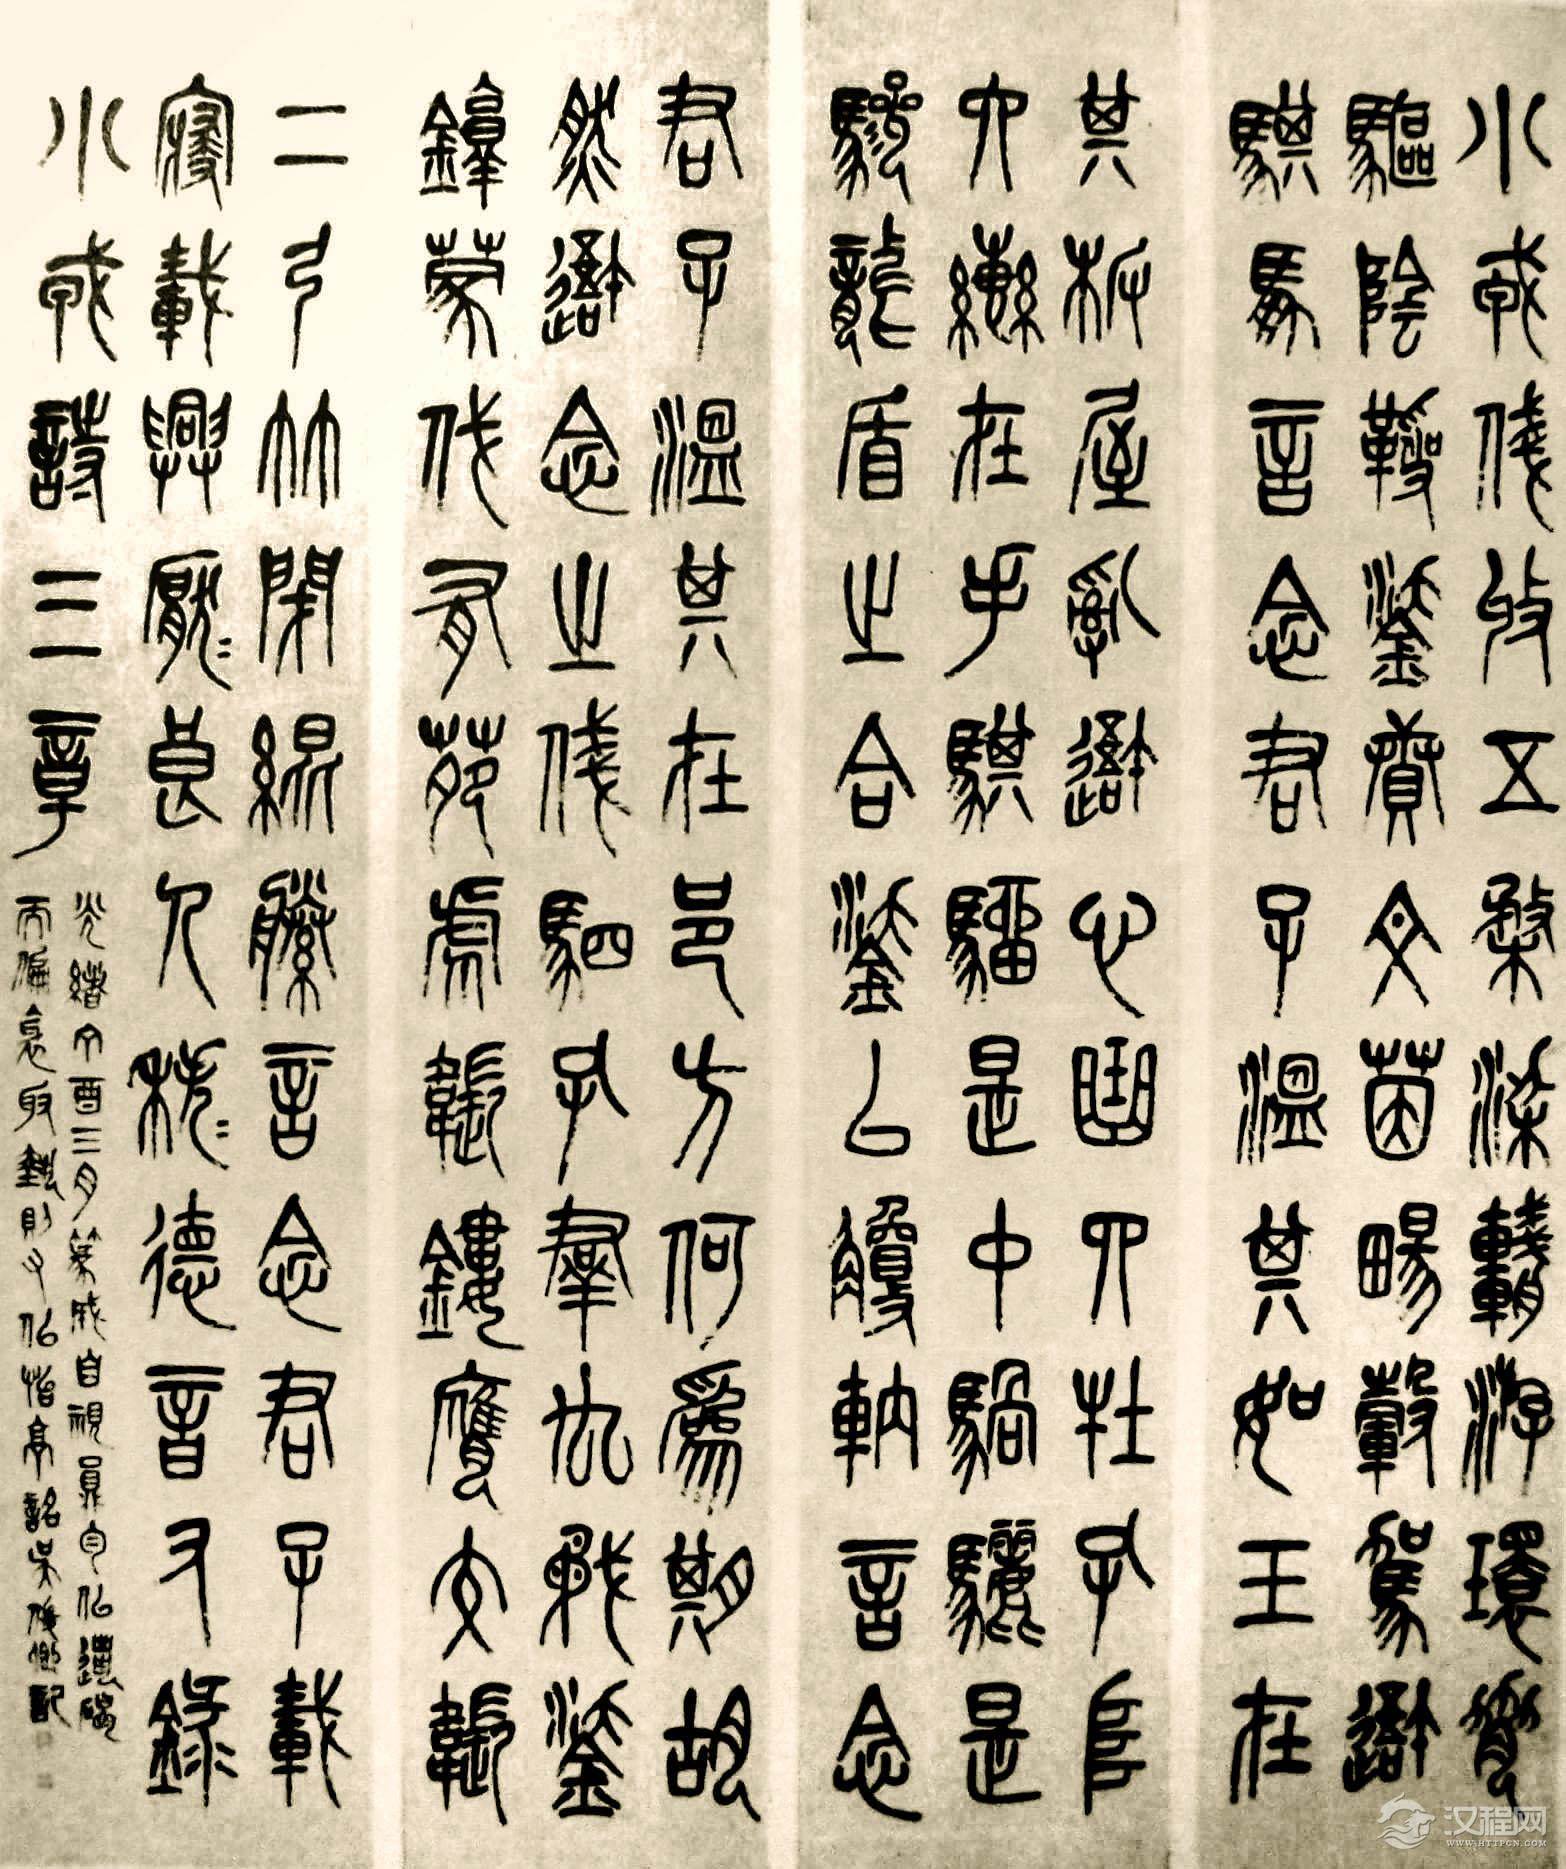 小戎俴收五楘梁輈游環脅
驅陰靷鋈續文茵暢轂駕我
騏馵言念君子溫其如玉在
其板屋亂我心曲四牡孔阜
六轡在手騏騮是中騧驪是
驂龍盾之合鋈以觼軜言念
君子溫其在邑方何為期胡
然我念之俴駟孔羣厹矛鋈
錞蒙伐有苑虎韔鏤膺交韔
二弓竹閉緄縢言念君子載
寢載興厭=良人秩=德音又錄
小戎詩三章
光緒丁酉三月篆成自視
而偏取埶則又似怡亭銘吳俊卿記
汉程网
WWW.HTTPCN.COM